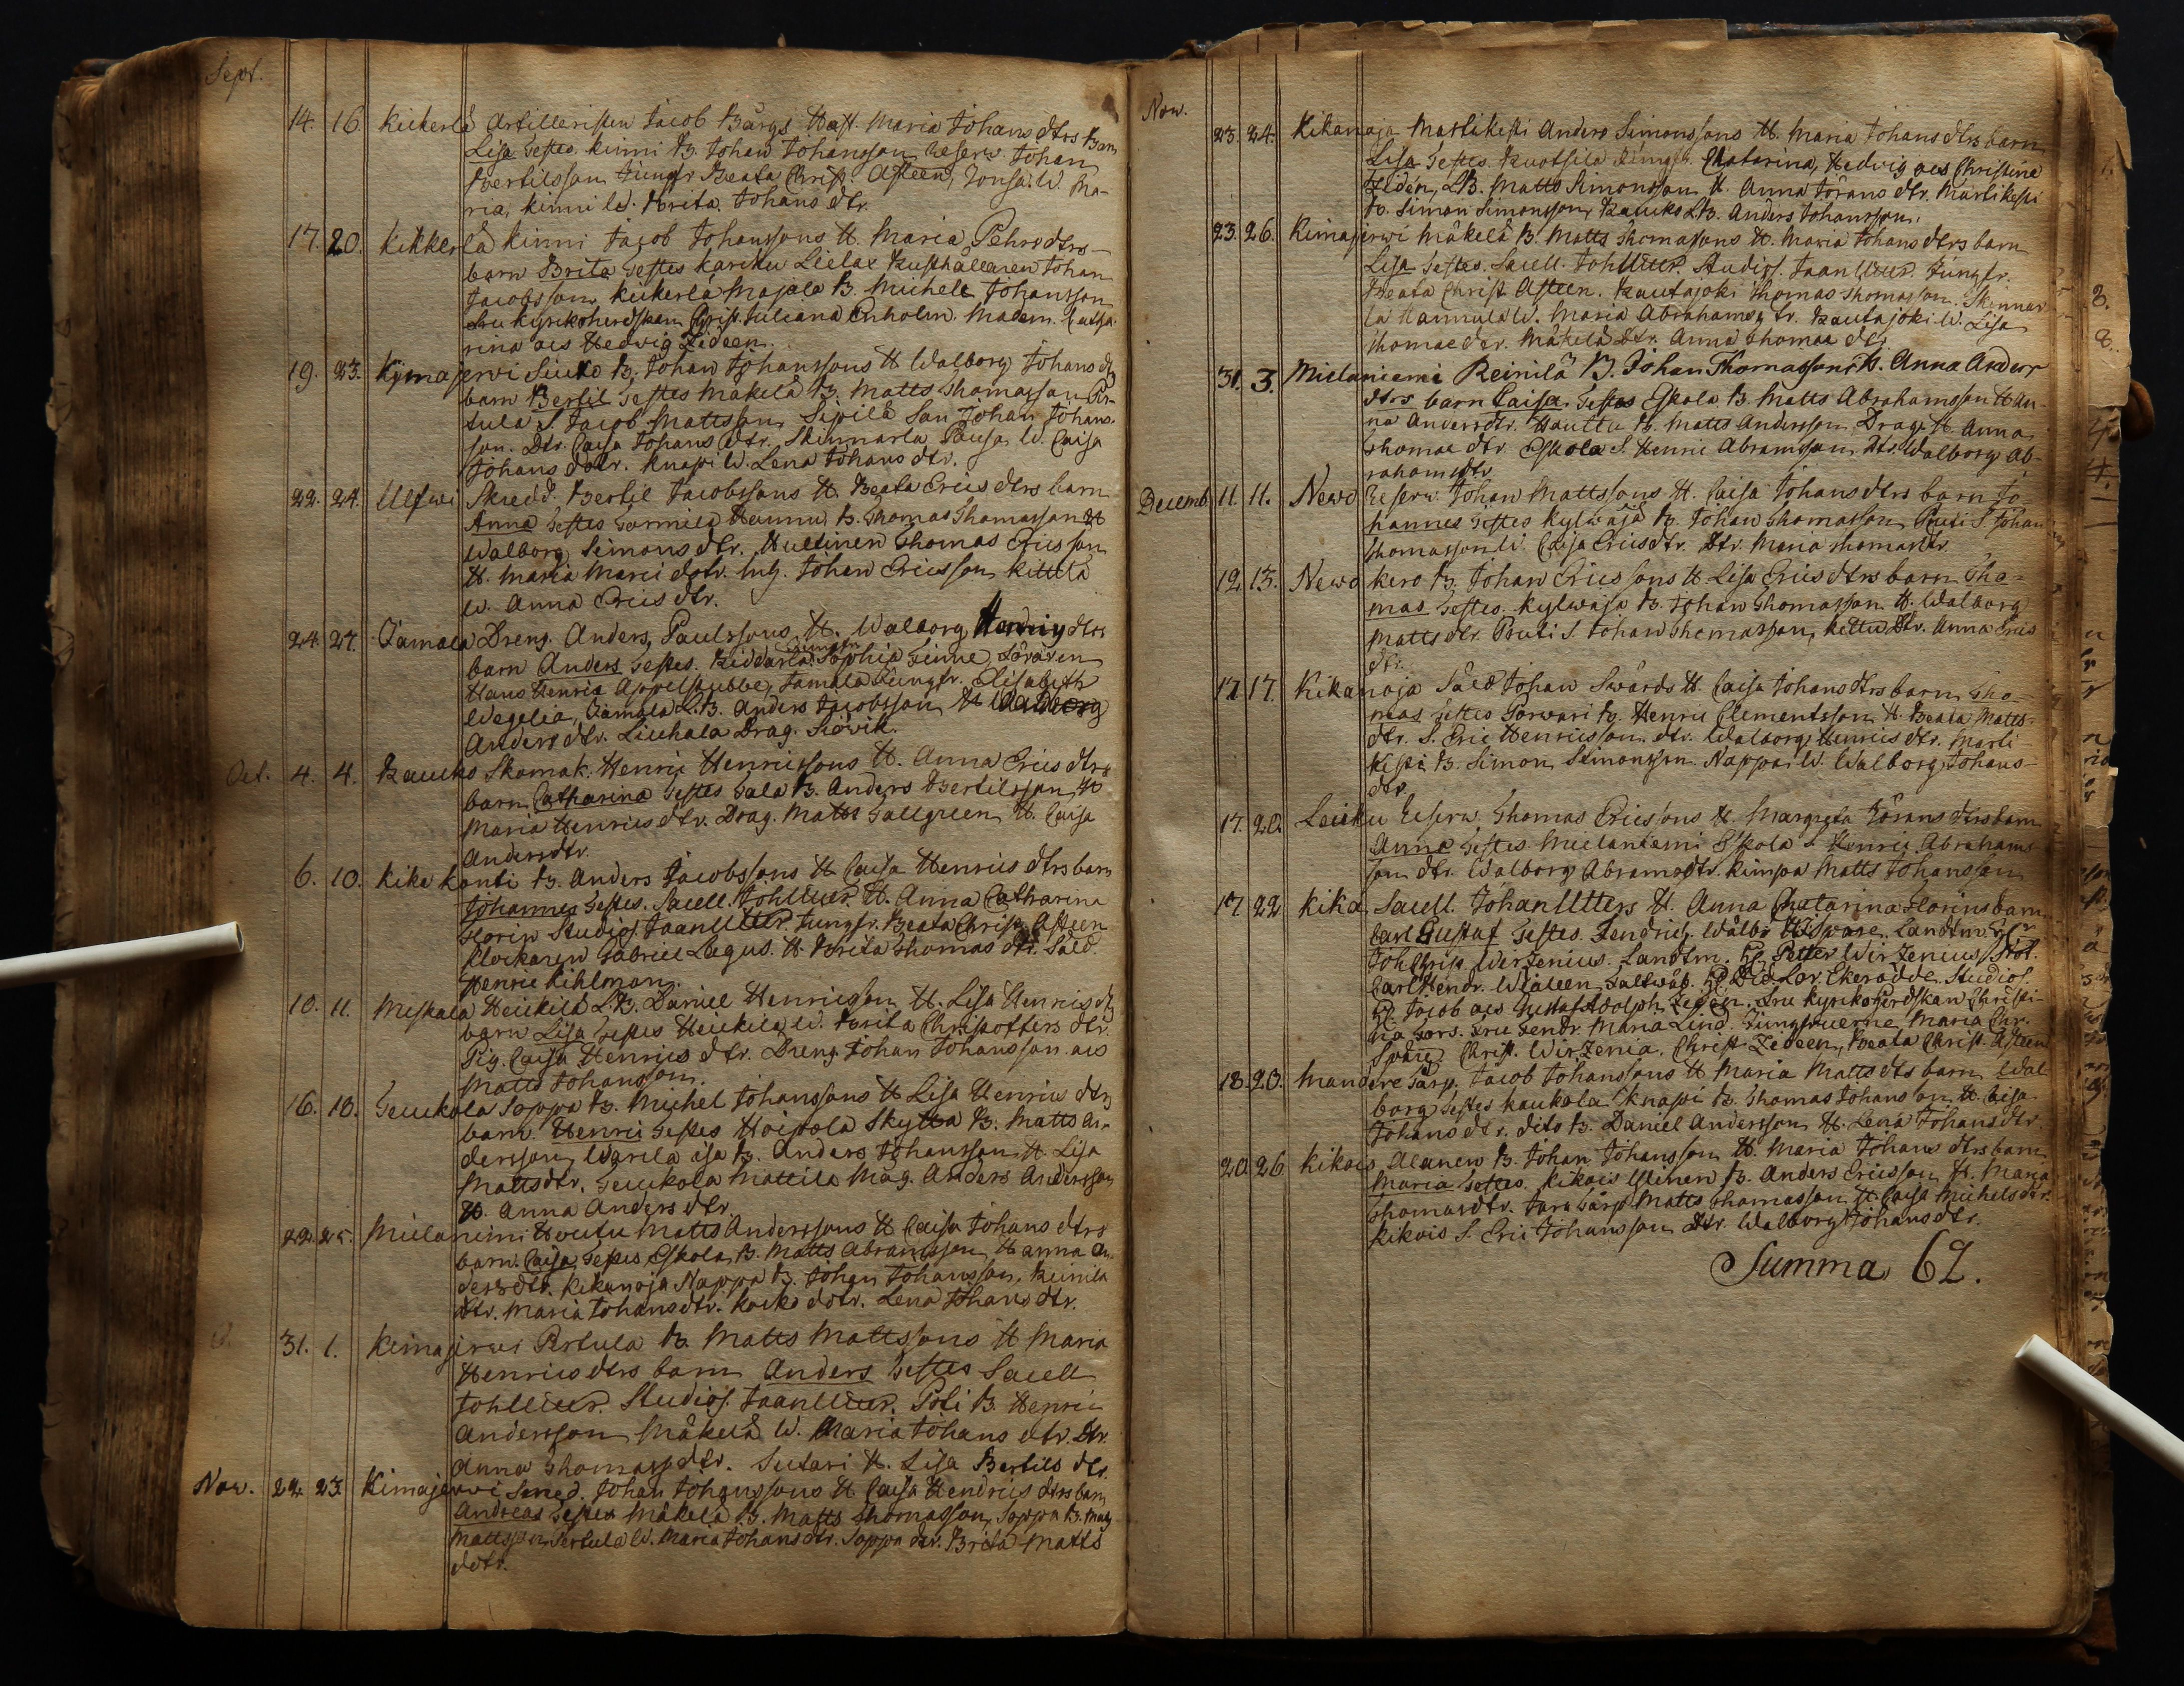 Sept.
14. 16. Kickerlä Artilleristen Jacob Bärgs Hust. Maria Johans dtrs barn
Lisa Testes. Kinni B. Johan Johansson Reserv. Johan
Bertilsson Jungfr Beata Christ Asteen, W. Ma-
ria, Kinni W. Brita Johans dtr.
17. 20. Kikkerlä Kinni Jacob Johanssons H. Maria Pehrs dtrs
barn Brita Testes Rusthållaren Johan
Jacobsson, Kickerlä Majala B. Michell Johansson
Fru Kyrkoherdskan Christ. Juliana Enholm. Madem. Catha-
rina och Hedvig Zideen.
19. 23. Kimajerwi B. Johan Johanssons H Walborg Johans dtr
barn Bertil Testes Mäkelä B. Matts Thomasson Per-
tula S. Jacob Mattsson Sipilä Son Johan Johans-
son. Dtr. Caisa Johans dtr. Skinnarla W. Caisa
Johans dotr. Knapi W. Lena Johans dtr.
22. 24. Ulfwi Skredd. Bertil Jacobssons H. Beata Erics dtrs barn
Anna Testes Tormilä Hannu B. Thomas Thomasson H
Walborg Simons dtr. Thomas Ericsson
H. Maria Marci dotr. Johan Ericsson
W. Anna Erics dtr.
24. 27. Tamala Dreng. Anders Paulssons H. Walborg dtrs
barn Anders Testes. Sophia
Hans Henric Appelgubbe, Tamala Jungfr. Elisabeth
Wegelia, Tamala L.B. Anders Jacobsson H Walborg
Anders dtr. Liuhala Drag. Siövik.
Oct. 4. 4. Kauko Skomak. Henric Henricssons H. Anna Erics dtrs
barn Catharina Testes Sala B. Anders Bertilsson H
Maria Henrics dtr. Drag. Matts Tallgreen H. Caisa
Andersdtr.
6. 10. Kika Konti B. Anders Jacobssons H Caisa Henrics dtrs barn
Johannes Testes. Sacell. Joh Utter. H. Anna Catharina
Florin Studios. Jaan Utter. Jungfr. Beata Christ. Asteen
Klockaren Gabriel Legus. H. Brita Thomas dtr. Sald.
Henric Kihlman.
10. 11. Meskala Heickilä L.B. Daniel Henricsson H. Lisa Henrics dtr
barn Lisa Testes Heickilä W. Brita Christoffers dtr.
Pig. Caisa Henrics dtr. Dreng Johan Johansson och
Matts Johansson.
16. 18. Teuckola Soppa B. Michel Johanssons H Lisa Henrics dtrs
barn. Henric Testes Hoipola Skyttä B. Matts An-
dersson, Warila B. Anders Johansson H. Lisa
Mattsdtr. Teuckola Mattila Måg. Anders Andersson
H. Anna Anders dtr.
22. 25. Mielanimi Houtu Matts Anderssons H Caisa Johans dtrs
barn. Caisa Testes Eskola B. Matts Abramsson H Anna An-
dersdtr. Kikanoja Nappa B. Johan Johansson, Reinilä
dtr. Maria Johansdtr. Koiko dotr. Lena Johans dtr.
31. 1. Kimajerwi Pertula B. Matts Mattssons H Maria
Henricsdtrs barn Anders Testes Sacell
Joh Utter. Studios. Jaan Utter. Poli B. Henric
Andersson Mäkelä W. Maria Johans dtr. Dtr.
Anna Thomasdtr. Sutari H. Lisa Bertils dtr.
Nov. 22. 23. Kimajerwi Smed. Johan Johanssons H Caisa Hendrics dtrs barn
Andreas Testes Mäkelä B. Matts Thomasson, Soppa B. Matts
Mattsson, Pertula W. Maria Johans dtr. Soppa dtr. Brita Matts
dotr.
Nov.
23. 24. Kikanoja Martikesti Anders Simonssons H. Maria Johans dtrs barn
Lisa Testes. Jungfr. Chatarina, Hedvig och Christina
Zidén, L.B. Matts Simonsson H. Anna Jörans dtr. Martikesti
B. Simon Simonsson, Kauko L.B. Anders Johansson.
23. 26. Kimajerwi Mäkelä B. Matts Thomassons H. Maria Johans dtrs barn
Lisa Testes. Sacell. Joh Utter. Studios. Jaan Utter. Jungfr.
Beata Christ Asteen. Rautajoki Thomas Thomasson. Skinnar
la Hannula W. Maria Abrahams dtr. Rautajoki W. Lisa
Thomae dtr. Mäkelä Dtr. Anna Thomae dtr.
31. 3. Mielaniemi Reinilä B. Johan Thomassons H. Anna Anders
dtrs barn Caisa. Testes Eskola B. Matts Abrahamsson H An-
na Andersdtr. Hauttu B. Matts Andersson, Drag. H Anna
Thomae dtr. Eskola S. Henric Abramsson, Dtr. Walborg Ab-
rahamsdtr.
Decemb. 11. 11. Newo Reserv. Johan Mattssons H. Caisa Johans dtrs barn Jo-
hannes Testes Kylwäjä B. Johan Thomasson, Pruti S Johan
Thomasson W. Caisa Ericsdtr. Dtr. Maria Thomasdtr.
12. 13. Newo Kero B. Johan Ericssons H Lisa Erics dtrs barn Tho-
mas Testes. Kylwäjä B. Johan Thomasson H. Walborg
Matts dtr. Pruti S. Johan Thomasson, Kettu Dtr. Anna Erics
dtr.
17. 17. Kikanoja Sald Johan Swärds H. Caisa Johans dtrs barn Tho-
mas Testes Porwari B. Henric Clementsson H. Beata Matts-
dtr. S. Eric Henricsson. dtr. Walborg Henrics dtr. Marti-
kesti B. Simon Simonsson Nappa W. Walborg Johans-
dtr.
17. 20. Leicku Reserv. Thomas Ericssons H. Margreta Jörans dtrs barn
Anna Testes Mielaniemi Eskola S Henric Abrahams
son dtr. Walborg Abrams dtr. Kimpa Matts Johansson
17. 22. Kika. Sacell. Johan Utters H. Anna Chatarina Florins barn
Carl Gustaf Testes. Fendrich Landtm.
Joh Christ Wirzenius. Landtm. H: Petter Wirzenius,
Carl Hendr. Studios.
H: Jacob och Gustaf Adolph Zidén, Fru Kyrkoherdskan Christi-
na Fru Fendr. Maria Lind. Jungfruerne Maria Chr.
Christ. Wirzenia. Christ Zideen, Beata Christ. Asteen
18. 20. Mandere Tårp. Jacob Johanssons H Maria Matts dtrs barn Wal
borg Testes Kaukola Knapi B. Thomas Johansson H. Caisa
Johans dtr. dito B. Daniel Andersson H. Lena Johans dtr.
20. 26. Kikois Alanen B. Johan Johansson H. Maria Johans dtrs barn
Maria Testes. Kikois Ylinen B. Anders Ericsson H. Maria
Thomasdtr. Tårp Matts Thomasson H. Caisa Michelsdtr.
Kikois S. Eric Johansson Dtr. Walborg Johansdtr.
Summa 62.